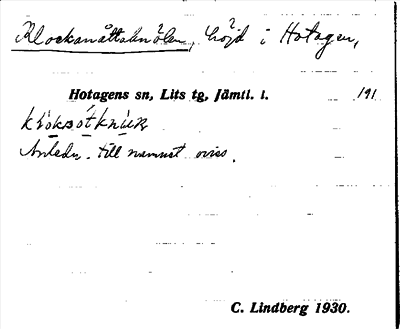 Klocksnåttaknölen, höjd i Hotagen,
Hotagens sn, Lits tg, Jämtl. l. 191
Anledn. till namnet oviss.
C. Lindberg 1930.